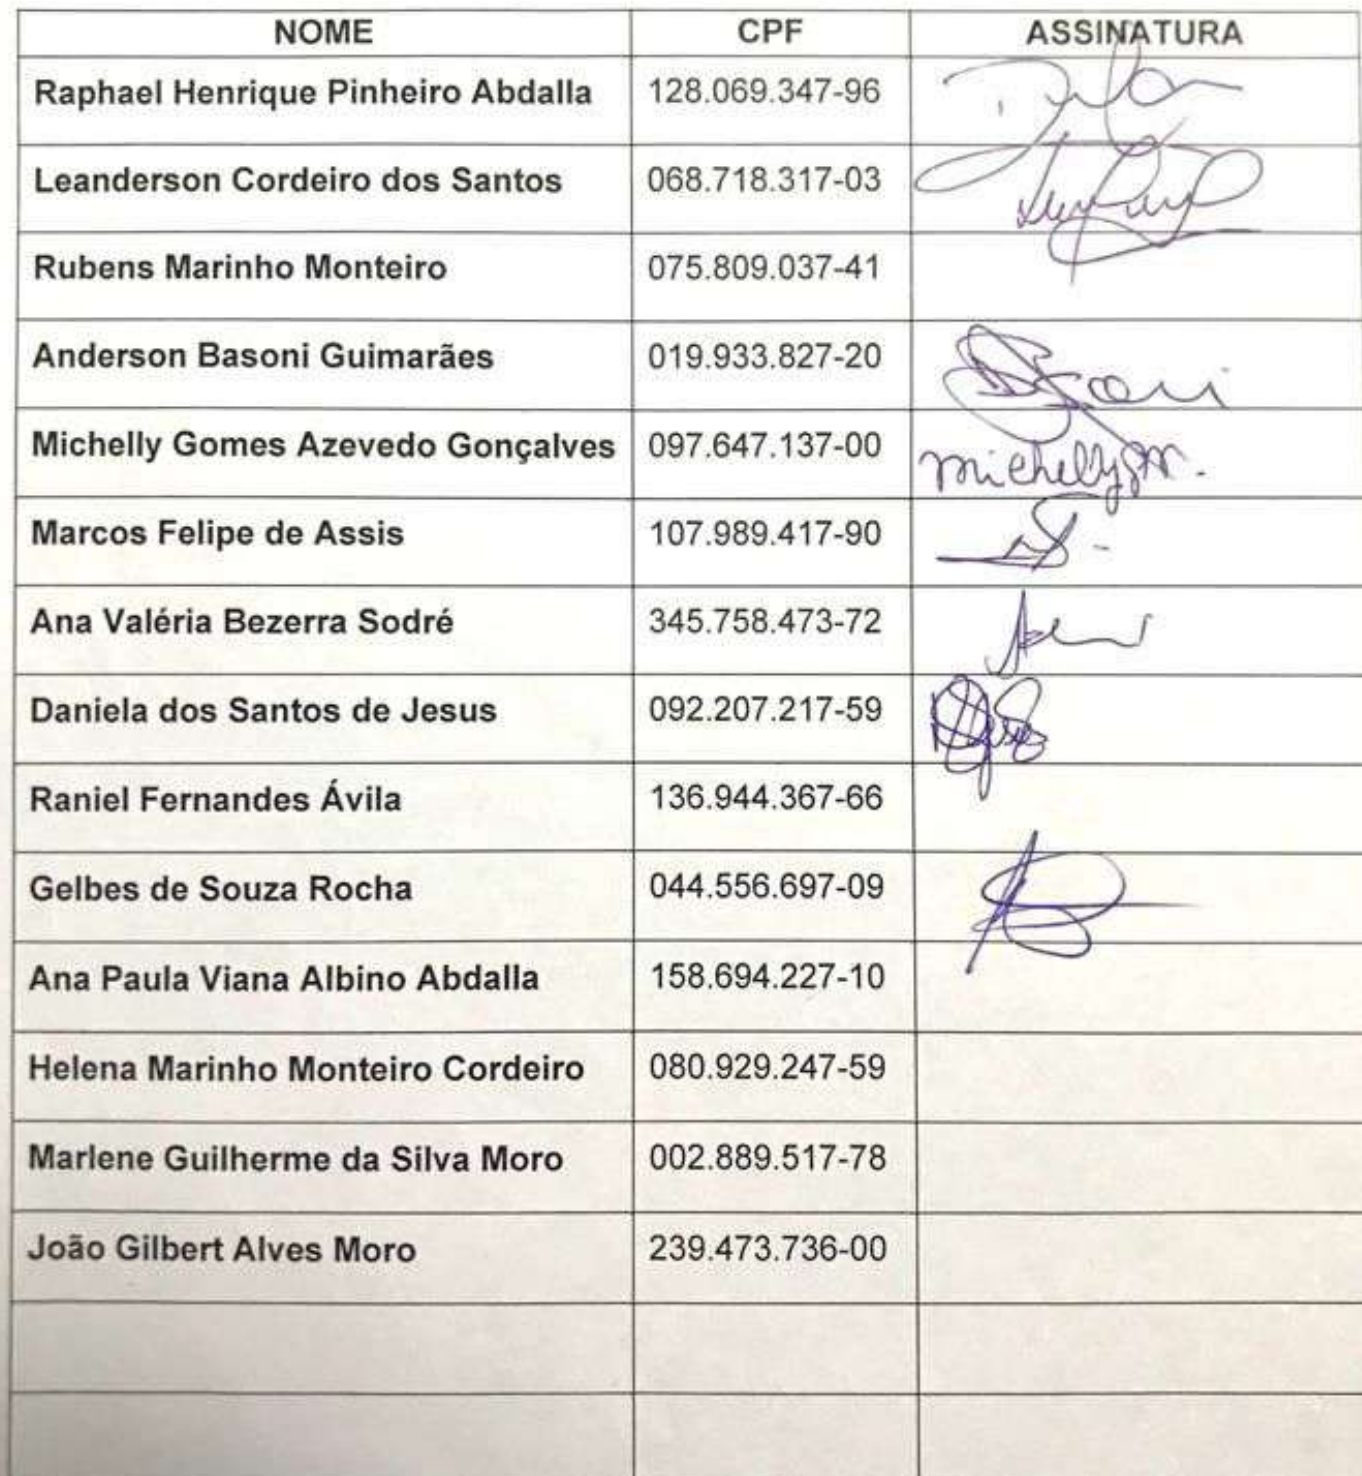 NOME CPF ASSINATURA
Raphael Henrique Pinheiro Abdalla 128.069.347-96
Leanderson Cordeiro dos Santos 068.718.317-03
Rubens Marinho Monteiro 075.809.037-41
Anderson Basoni Guimarães 019.933.827-20
Michelly Gomes Azevedo Gonçalves 097.647.137-00 Michelly
Marcos Felipe de Assis 107.989.417-90
Ana Valéria Bezerra Sodré 345.758.473-72
Daniela dos Santos de Jesus 092.207.217-59
Raniel Fernandes Ávila 136.944.367-66
Gelbes de Souza Rocha 044.556.697-09
Ana Paula Viana Albino Abdalla 158.694.227-10
Helena Marinho Monteiro Cordeiro 080.929.247-59
Marlene Guilherme da Silva Moro 002.889.517-78
João Gilbert Alves Moro 239.473.736-00